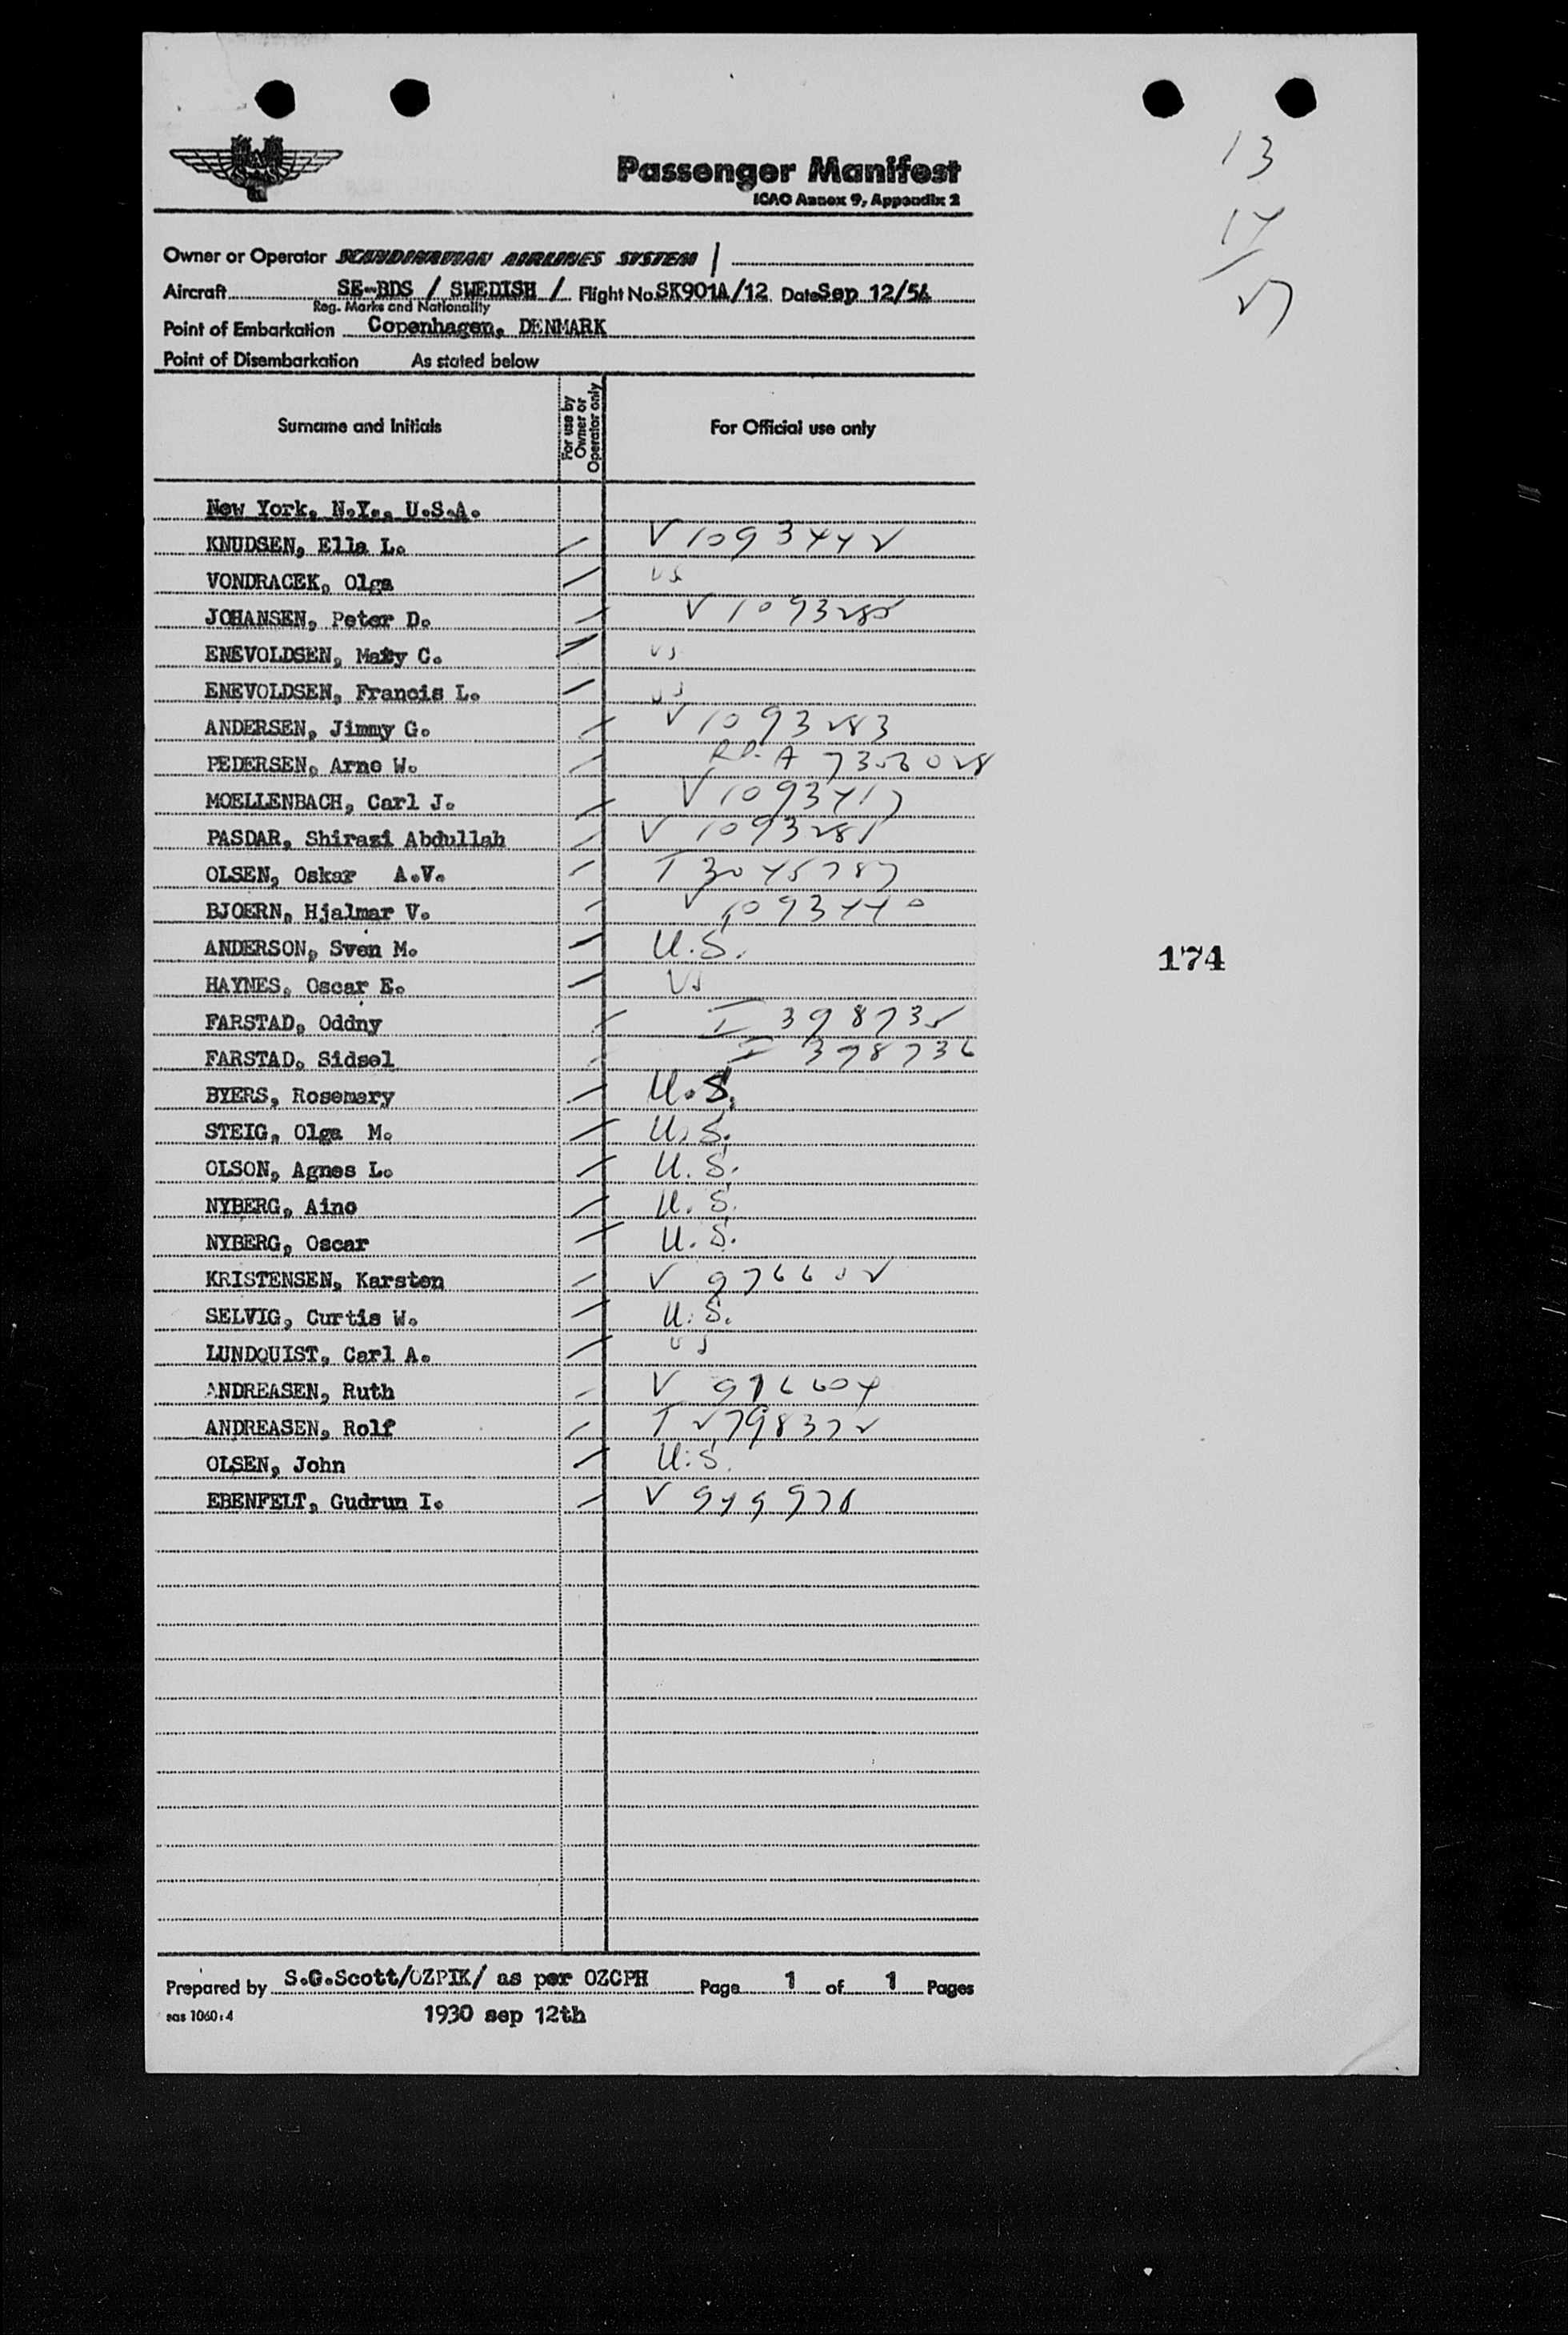 13
14
27
SAS
Passenger Manifest
ICAO Annex 9, Appendix 2
Owner or Operator SCANDINAVIAN AIRLINES SYSTEM /
Aircraft SE-BDS / SWEDISH / Flight No. SK901A/12 Date Sep 12/54
Reg. Marks and Nationality
Point of Embarkation Copenhagen, DENMARK
Point of Disembarkation As stated below
Surname and Initials For use by Owner or Operator only For Official use only
New York, N.Y., U.S.A.
KNUDSEN, Ella L. / V 1093442
VONDRACEK, Olga / US
JOHANSEN, Peter D. / V 1093285
ENEVOLDSEN, Mary C. / US
ENEVOLDSEN, Francis L. / US
ANDERSEN, Jimmy G. / V 1093283
PEDERSEN, Arne W. /
MOELLENBACH, Carl J. / V 1093417
PASDAR, Shirazi Abdullah / V 1093281
OLSEN, Oskar A.V. / T 3045787
BJOERN, Hjalmar V. / V 1093440
ANDERSON, Sven M. / U.S.
HAYNES, Oscar E. / US
FARSTAD, Oddny / I 398735
FARSTAD, Sidsel / I 398736
BYERS, Rosemary / U.S.
STEIG, Olga M. / U.S.
OLSON, Agnes L. / U.S.
NYBERG, Aino / U.S.
NYBERG, Oscar / U.S.
KRISTENSEN, Karsten / V 976602
SELVIG, Curtis W. / U.S.
LUNDQUIST, Carl A. / US
ANDREASEN, Ruth / V 976604
ANDREASEN, Rolf / T 2798372
OLSEN, John / U.S.
EBENFELT, Gudrun I. / V
174
Prepared by S.G.Scott/OZPIK/ as per OZCPH Page 1 of 1 Pages
sas 1060:4 1930 sep 12th